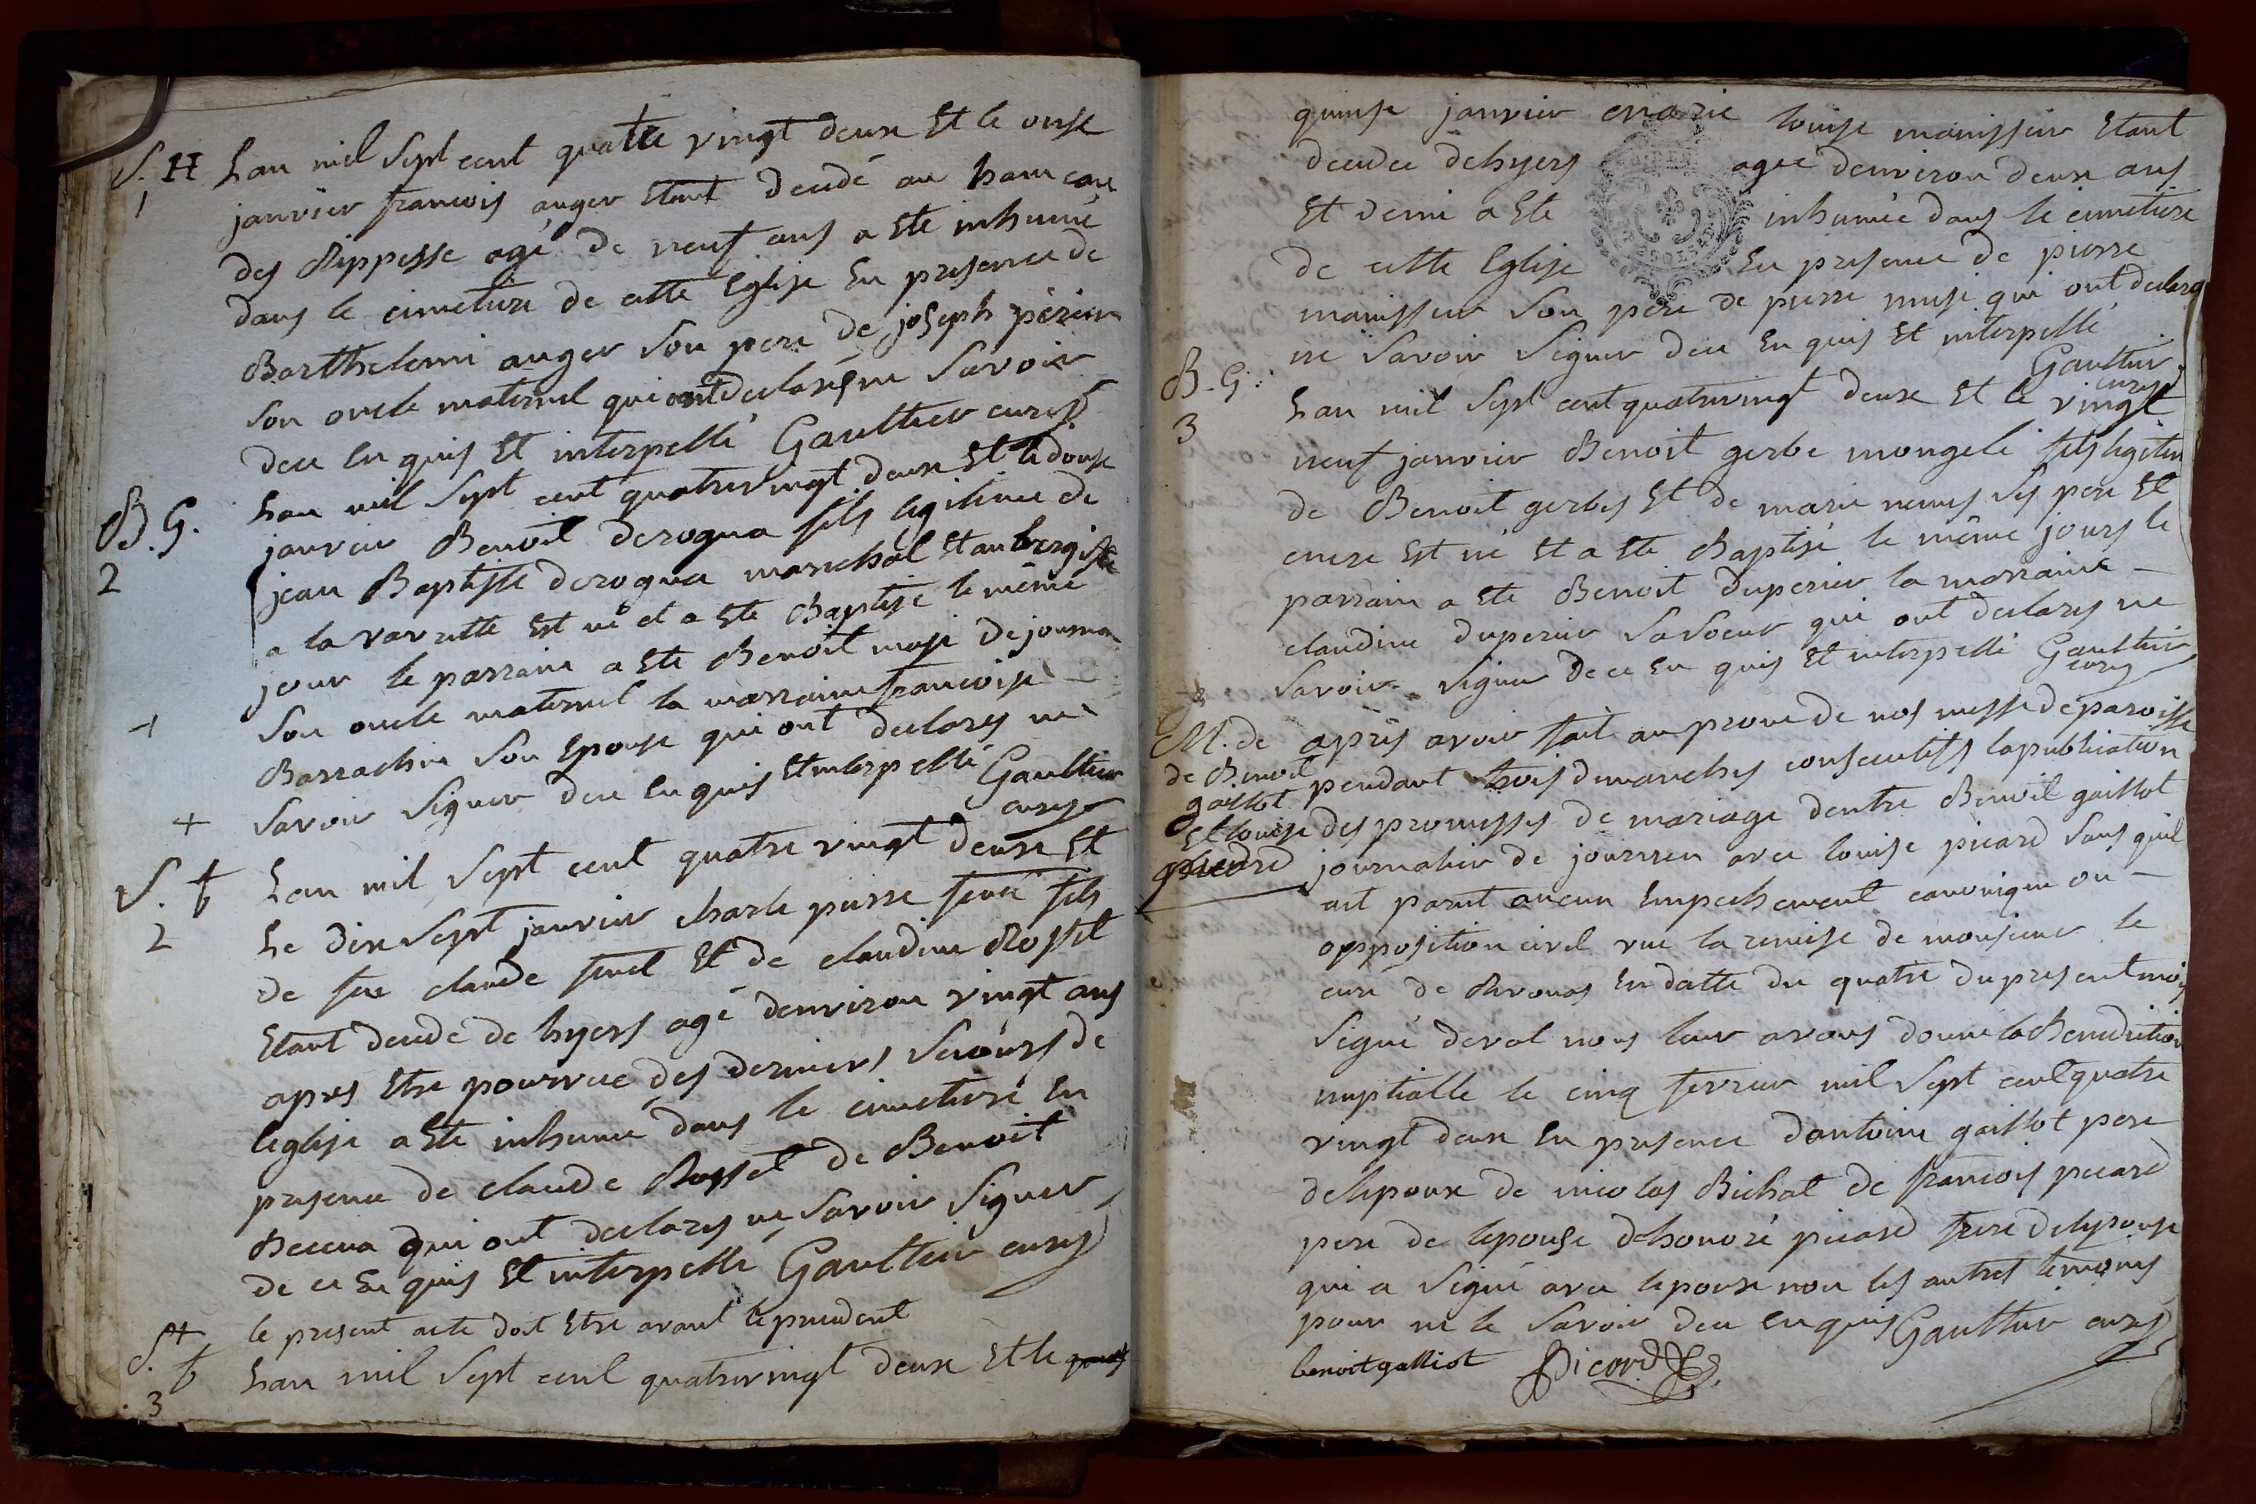 S. H Lan mil sept cent quatre vingt deux Et le onse
1
janvier francois auger Etant decidé au hameau
des Rippesse agé de neuf ans a Ete inhumé
dans le cimetiere de cette Eglise En presence de
Barthelemi auger son pere de joseph perier
son oncle maternel qui ont declarés ne savoir
dece En quis Et interpellé Gaulthier curé
B. G. Lan mil sept cent quatrevingt deux Et le douse
2
janvier Benoit derogna fils legitime de
jean Baptiste derogna marechal Et aubergiste
a la vavrette Est né et a Ete Baptisé le même
jour le parrain a Ete Benoit muse de journan
son oncle maternel la marraine francoise
Barrachin son Epouse qui ont declarés ne
savoir signer dece En quis Et interpellé Gaulthier
curé
S. f Lan mil sept cent quatre vingt deux Et
2
Le dixsept janvier charle pierre fils
de feu claude Et de claudine Rosset
Etant decidé de hyers agé denviron vingt ans
apres Etre pourvue des derniers secours de
leglise a Ete inhumé dans le cimetiere En
presence de claude Rosset de Benoit
qui ont declarés ne savoir signer
de ce En quis Et interpellé Gaulthier curé
le present acte doit Etre avant le precedent
S. f Lan mil sept cent quatrevingt deux Et le
3
quinse janvier marie louise manissier Etant
decidée dehyers agée denviron deux ans
Et demi a Ete inhumée dans le cimetiere
de cette Eglise En presence de pierre
manissier son pere de pierre muse qui ont declaré
ne savoir signer dece En quis Et interpellé
Gaulthier
curé
B. G. Lan mil sept cent quatrevingt deux Et le vingt
3
neuf janvier Benoit gerbe mongeli fils legitim
de Benoit gerbes Et de marie nemes ses pere Et
mere Est né Et a Ete Baptisé le même jours le
parrain a Ete Benoit duperier la marraine
claudine duperier sa soeur qui ont declarés ne
savoir signer dece En quis Et interpellé Gaulthier
curé
M. de
de Benoit
gaillot
Et louise
picard
apres avoir fait au prone de nos messe de paroisse
pendant trois dimanches consecutifs la publication
des promesses de mariage dentre Benoit gaillot
journalier de journan avec louise picard sans quil
ait parut aucun Empechement canonique ou
opposition civil vue la remise de monsieur le
curé de Revonas En datte du quatre du present mois
signé deval nous leur avons donné la Benediction
nuptialle le cinq fevrier mil sept cent quatre
vingt deux En presence dantoine gaillot pere
de lepoux de nicolas Bichat de francois picard
pere de lepouse dehonoré picard frere de lepouse
qui a signé avec lepoux non les autres temoins
pour ne le savoir dece Enquis Gaulthier curé
benoit galliot Picard